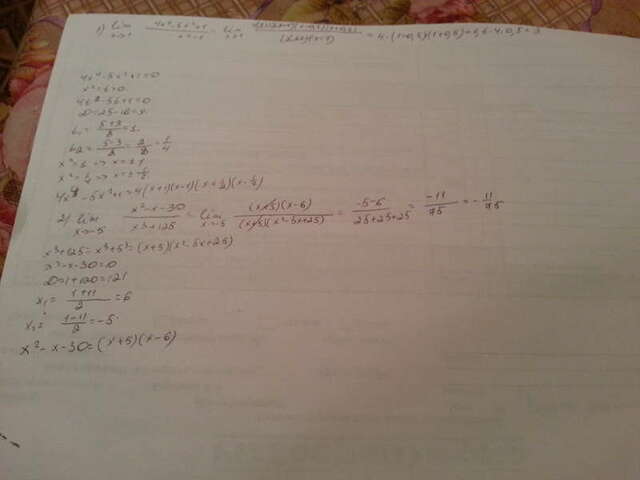 1) lim x→1 (4x⁴-5x²+1)/(x²-1) = lim x→1 = 4·(1+0,5)(1-0,5)=
4x⁴-5x²+1=0
x²=t>0
4t²-5t+1=0
D=25-16=9
t₁=(5+3)/8=1
t₂=(5-3)/8=2/8=1/4
x²=1 => x=±1
x²=1/4 => x=±1/2
4x⁴-5x²+1=4(x+1)(x-1)(x+1/2)(x-1/2)
2) lim x→-5 (x²-x-30)/(x³+125) = lim x→-5 ((x+5)(x-6))/((x+5)(x²-5x+25)) = (-5-6)/(25+25+25) = -11/75 = -11/75
x³+125=x³+5³=(x+5)(x²-5x+25)
x²-x-30=0
D=1+120=121
x₁=(1+11)/2=6
x₂=(1-11)/2=-5
x²-x-30=(x+5)(x-6)